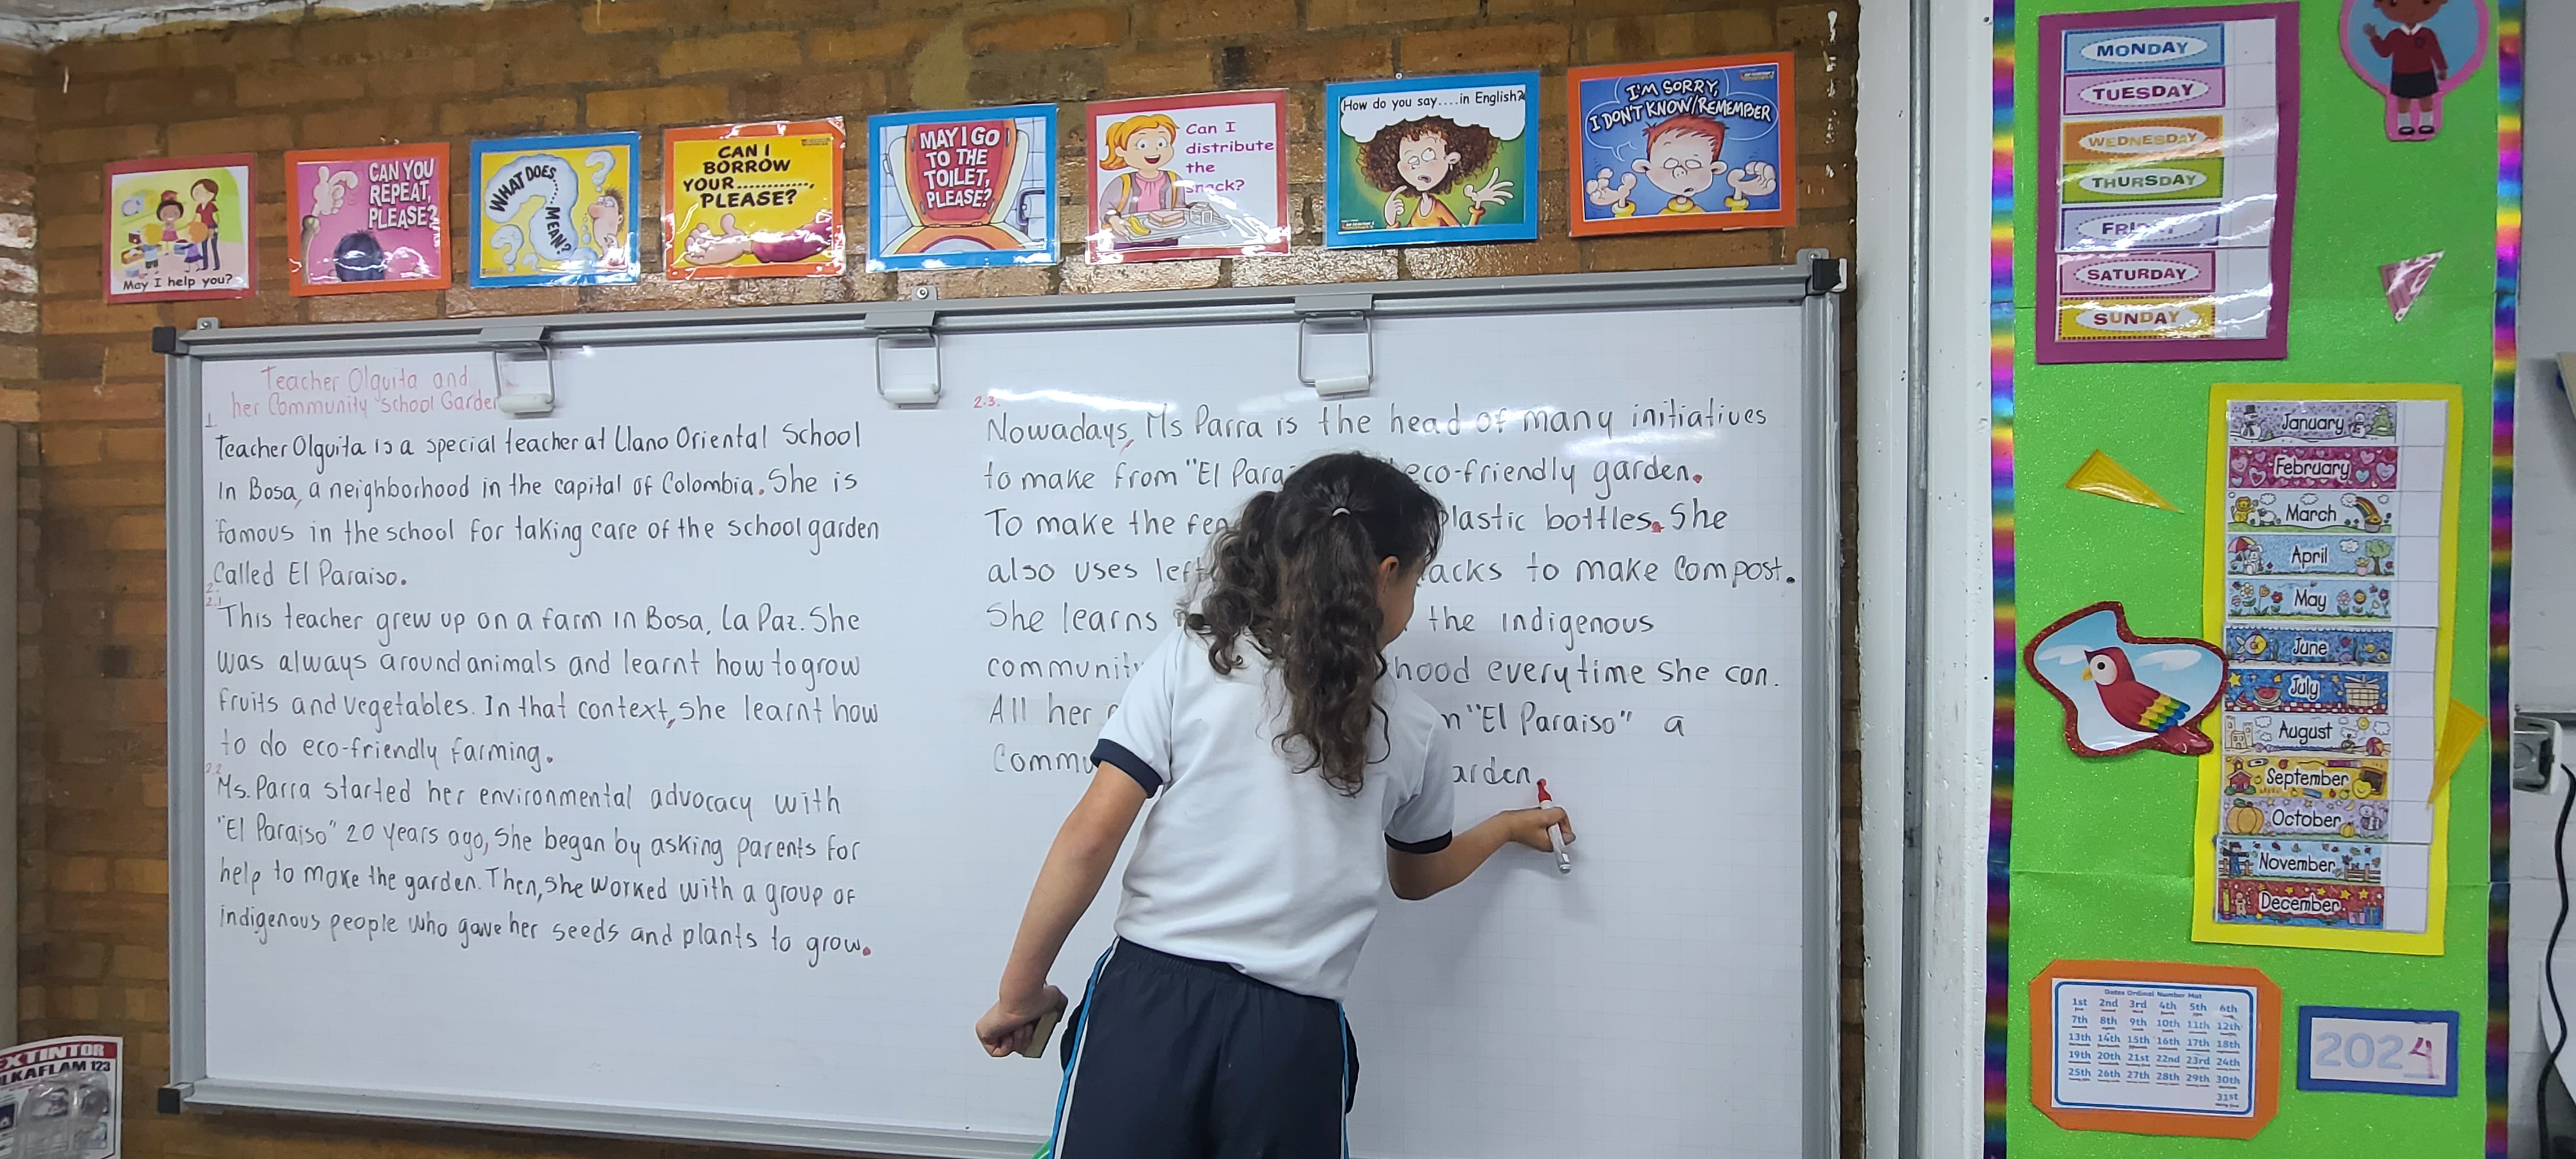 May I help you?
CAN YOU
REPEAT,
PLEASE?
WHAT DOES
...MEAN?
CAN I
BORROW
YOUR............,
PLEASE?
MAY I GO
TO THE
TOILET,
PLEASE?
Can I
distribute
the
snack?
How do you say....in English?
I'M SORRY,
I DON'T KNOW/REMEMBER
Teacher Olguita and
her Community School Garden
1.
Teacher Olguita is a special teacher at Llano Oriental School
In Bosa, a neighborhood in the capital of Colombia. She is
famous in the school for taking care of the school garden
Called El Paraiso.
2.
2.1
This teacher grew up on a farm in Bosa, La Paz. She
was always around animals and learnt how to grow
fruits and vegetables. In that context, she learnt how
to do eco-friendly farming.
2.2
Ms. Parra started her environmental advocacy with
"El Paraiso" 20 years ago, She began by asking parents for
help to make the garden. Then, she worked with a group of
indigenous people who gave her seeds and plants to grow.
2.3.
Nowadays, Ms Parra is the head of many initiatives
to make from "El Para eco-friendly garden.
To make the fen plastic bottles. She
also uses left acks to make compost.
She learns the indigenous
communit hood everytime she can.
All her n "El Paraiso" a
Commu arden.
MONDAY
TUESDAY
WEDNESDAY
THURSDAY
FRIDAY
SATURDAY
SUNDAY
January
February
March
April
May
June
July
August
September
October
November
December
Dates Ordinal Number Mat
1st 2nd 3rd 4th 5th 6th
7th 8th 9th 10th 11th 12th
13th 14th 15th 16th 17th 18th
19th 20th 21st 22nd 23rd 24th
25th 26th 27th 28th 29th 30th
31st
2024
EXTINTOR
LKAFLAM 123